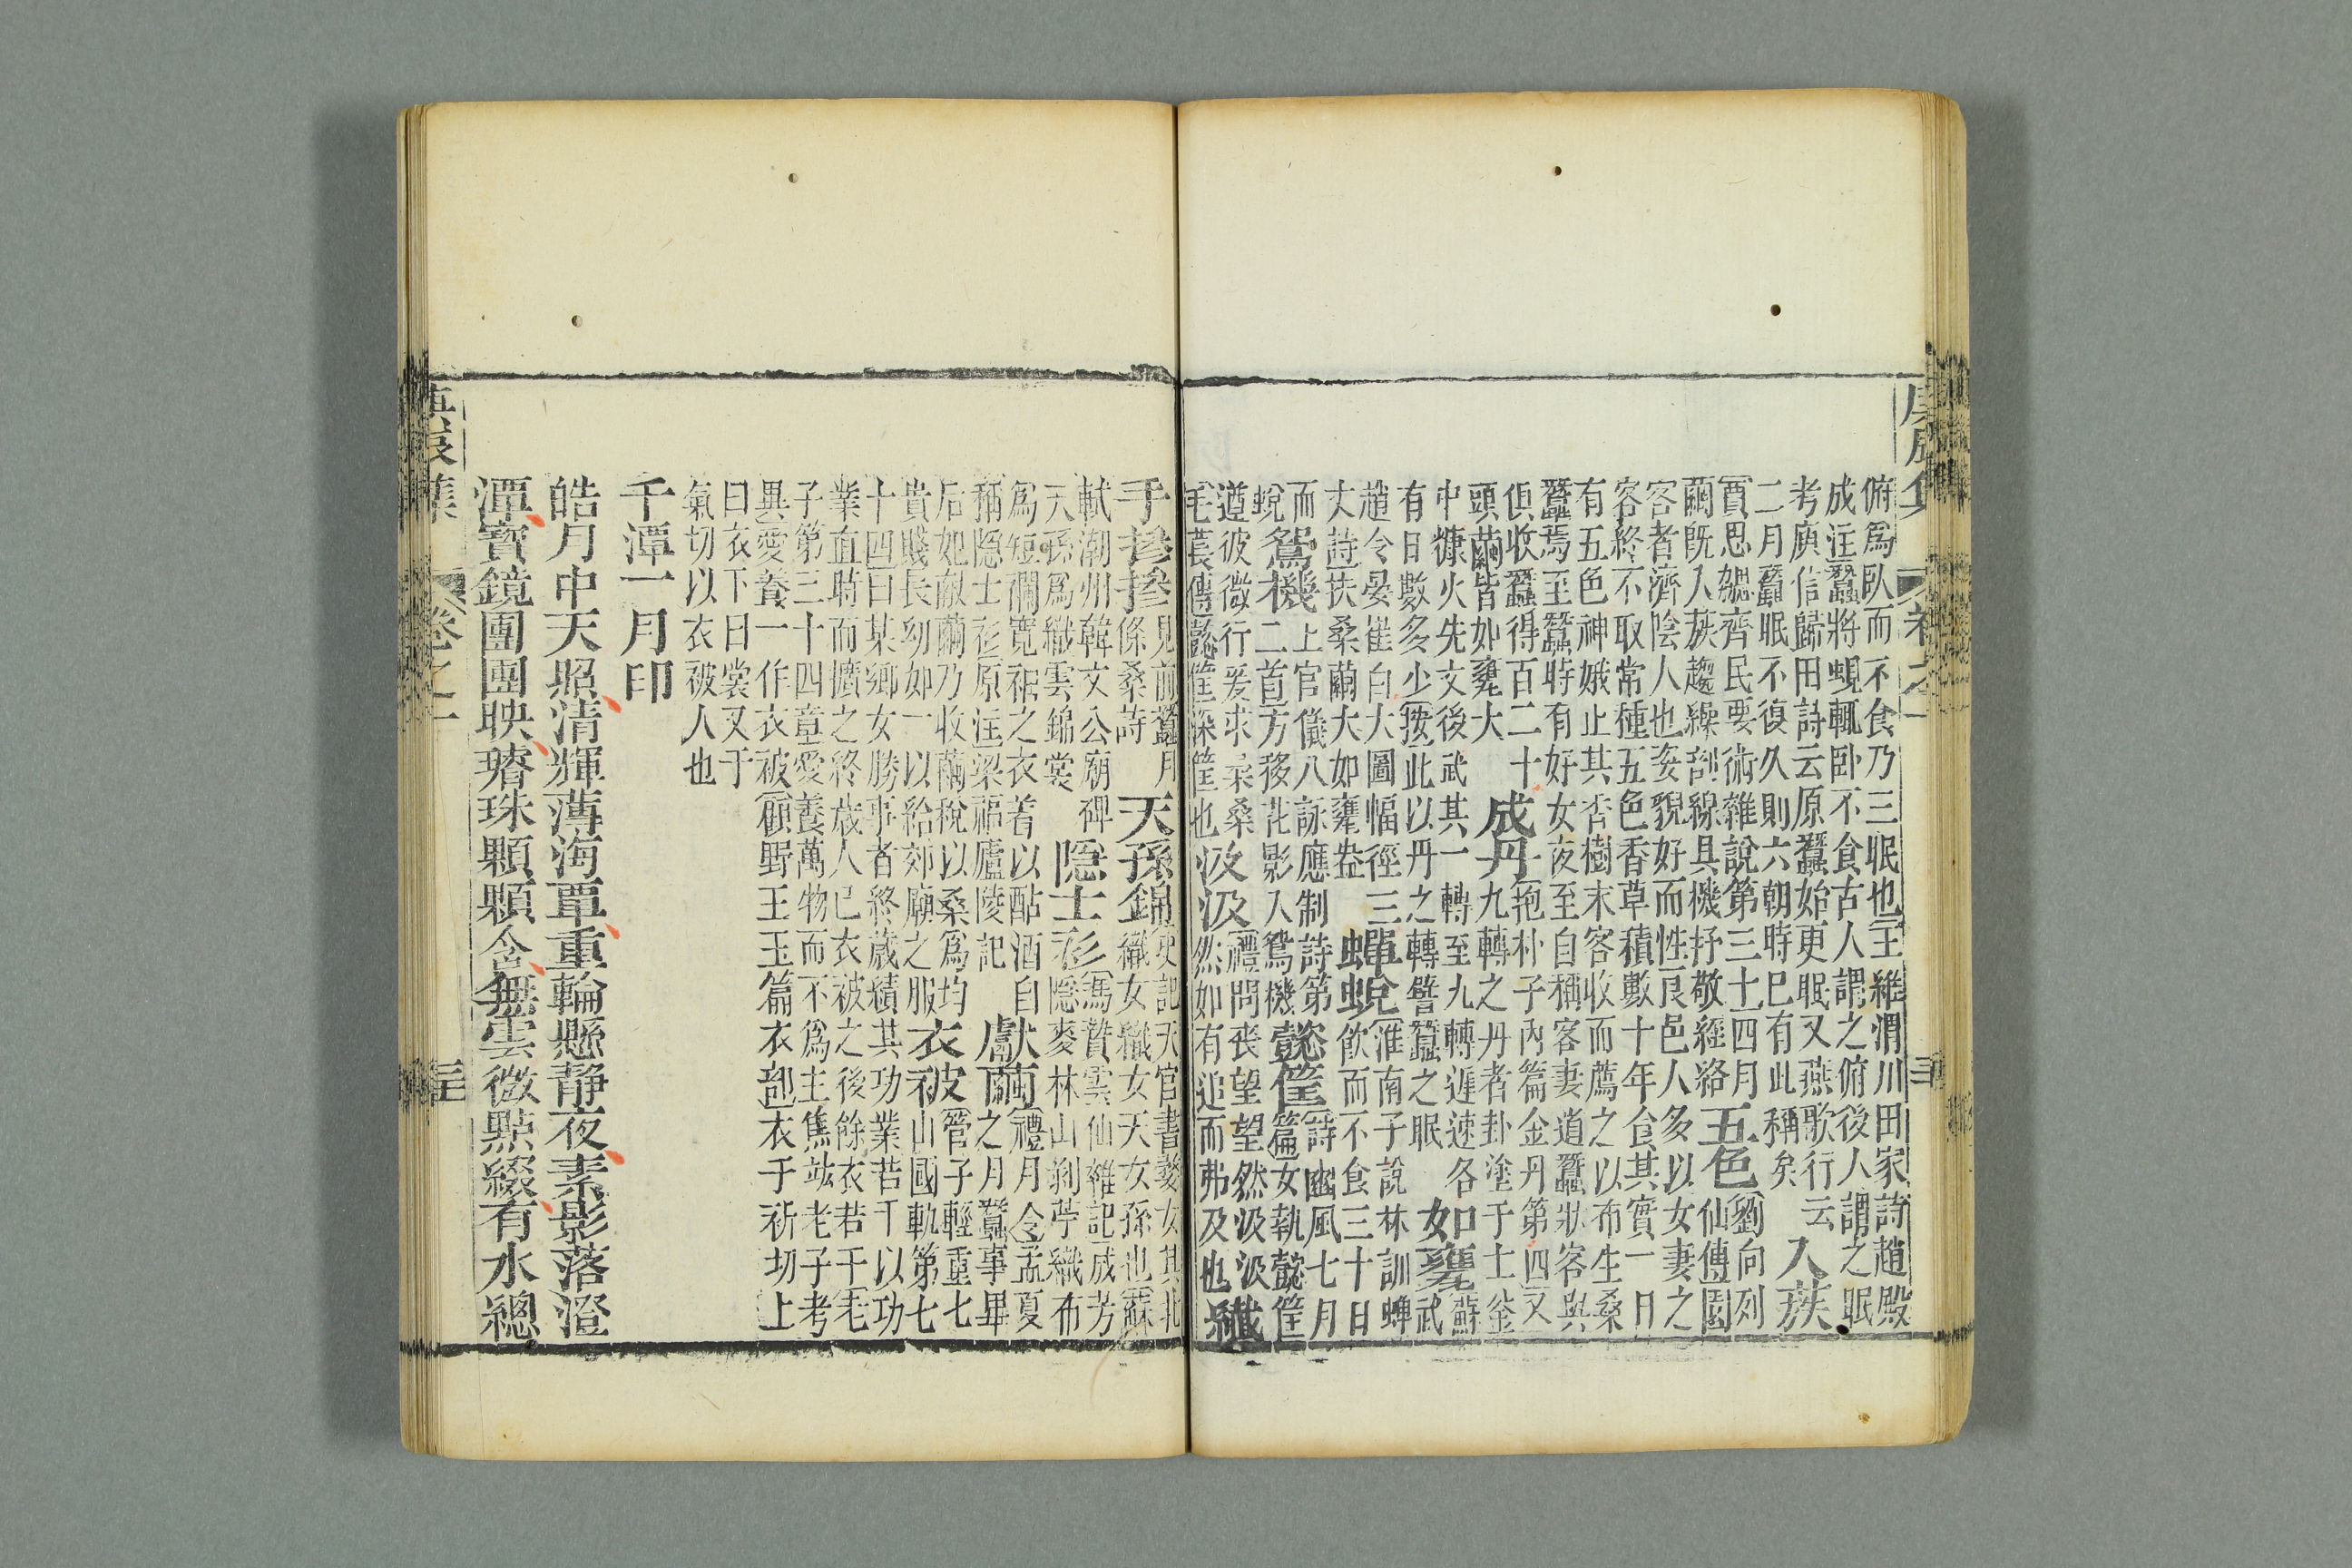 俯爲臥而不食乃三眠也王維渭川田家詩趙殿
成注蠶將蛻輒卧不食古人謂之俯後人謂之眠
考庾信歸田詩云原蠶始更眠又燕歌行云
二月蠶眠不復久則六朝時已有此稱矣
入蔟
賈思勰齊民要術雜說第三十四月
繭旣入蔟趨繰剖線具機杼敬經絡
五色
劉向列
仙傳園
客者濟陰人也姿貌好而性良邑人多以女妻之
客終不取常種五色香草積數十年食其實一日
有五色神娥止其香樹末客收而薦之以布生桑
蠶焉至蠶時有好女夜至自稱客妻道蠶狀客與
俱收蠶得百二十
頭繭皆如甕大
成丹
抱朴子內篇金丹第四又
九轉之丹者卦塗于土釜
中糠火先文後武其一轉至九轉遲速各
有日數多少按此以丹之轉譬蠶之眠
如甕
蘇
武
趙令晏崔白大圖幅徑三
丈詩扶桑繭大如甕盎
蟬蛻
淮南子說林訓蟬
飲而不食三十日
而
蛻
鴛機
上官儀八詠應制詩第
二首方移花影入鴛機
懿筐
詩豳風七月
篇女執懿筐
遵彼微行爰求柔桑
毛萇傳懿筐深筐也
汲汲
禮問喪望望然汲汲
然如有追而弗及也
纎
手摻摻
見前蠶月
條桑詩
天孫錦
史記天官書婺女其北
織女織女天女孫也蘇
軾潮州韓文公廟碑
天孫爲織雲錦裳
隠士衫
馮贄雲仙雜記成芳
隠麥林山剥苧織布
爲短襴寬袖之衣着以酤酒自
稱隠士衫原注梁福廬陵記
獻繭
禮月令孟夏
之月蠶事畢
后妃獻繭乃收繭稅以桑爲均
貴賤長幼如一以給郊廟之服
衣被
管子輕重七
山國軌第七
十四曰某鄉女勝事者終歳績其功業若干以功
業直時而擴之終歳人已衣被之後餘衣若干老
子第三十四章愛養萬物而不爲主焦竑老子考
異愛養一作衣被顧野王玉篇衣部衣于祈切上
曰衣下曰裳又于
氣切以衣被人也
千潭一月印
皓月中天照清輝薄海覃重輪懸靜夜素影落澄
潭寶鏡團團映璿珠顆顆含無雲微點綴有水總
卷之一